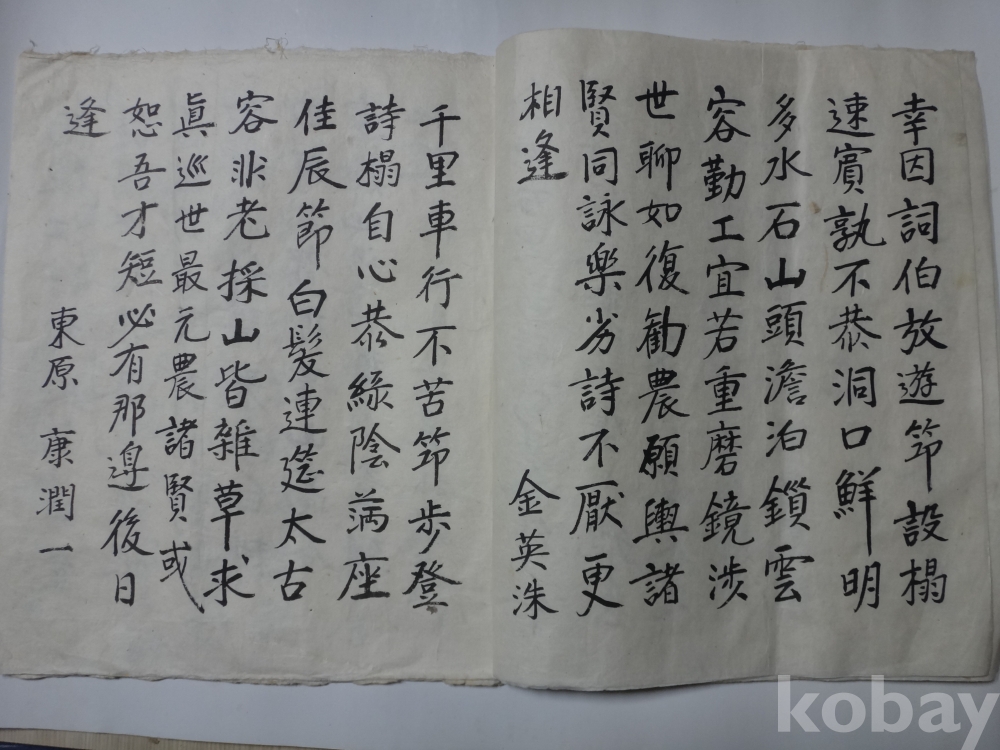 幸因詞伯放遊筇設榻
速賓孰不恭洞口鮮明
多水石山頭澹泊鎖雲
容勤工宜若重磨鏡涉
世聊如復勸農願輿諸
賢同詠樂劣詩不厭更
相逢
金英洙
千里車行不苦筇步登
詩榻自心恭綠陰滿座
佳辰節白髮連筵太古
容非老採山皆雜草求
眞巡世最元農諸賢或
恕吾才短必有那邊後日
逢
東原 康潤一
kobay